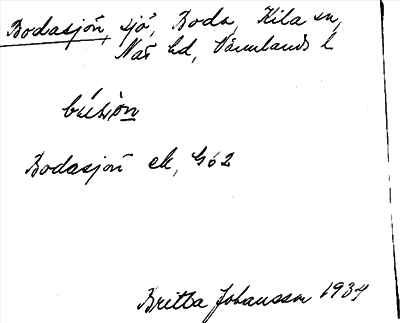 Bodasjön, sjö, Boda, Kila sn,
Näs hd, Värmlands l
Bodasjön ek, G62
Britta Johansson 1934